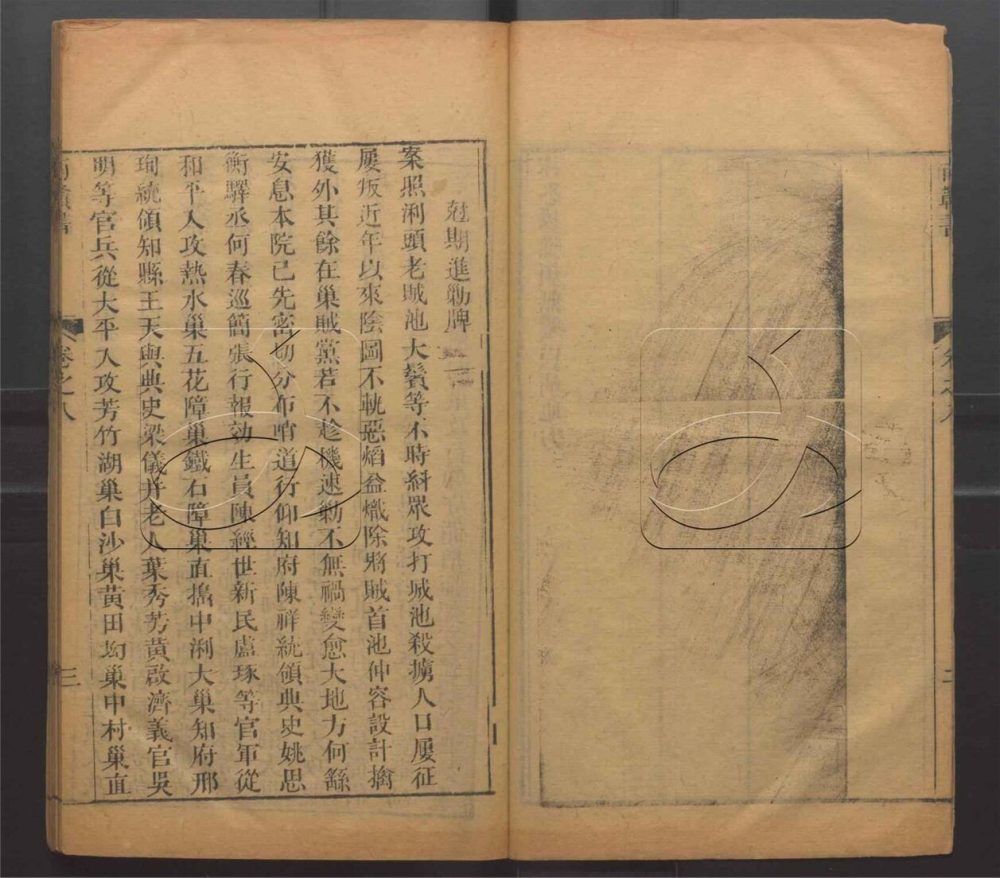 尅期進勦牌
案照浰頭老賊池大鬢等不時糾眾攻打城池殺擄人口屢征
屢叛近年以來陰圖不軌惡焰益熾除將賊首池仲容設計擒
獲外其餘在巢賊黨若不趁機速勦不無禍變愈大地方何繇
安息本院已先密切分布哨道行仰知府陳祥統領典史姚思
衡驛丞何春巡簡張行報効生員陳經世新民盧琢等官軍從
和平入攻熱水巢五花障巢鐵石障巢直搗中浰大巢知府邢
珣統領知縣王天與典史梁儀并老人葉秀芳黃啟濟義官吳
明等官兵從大平入攻芳竹湖巢白沙巢黃田坳巢中村巢直
卷之八
三